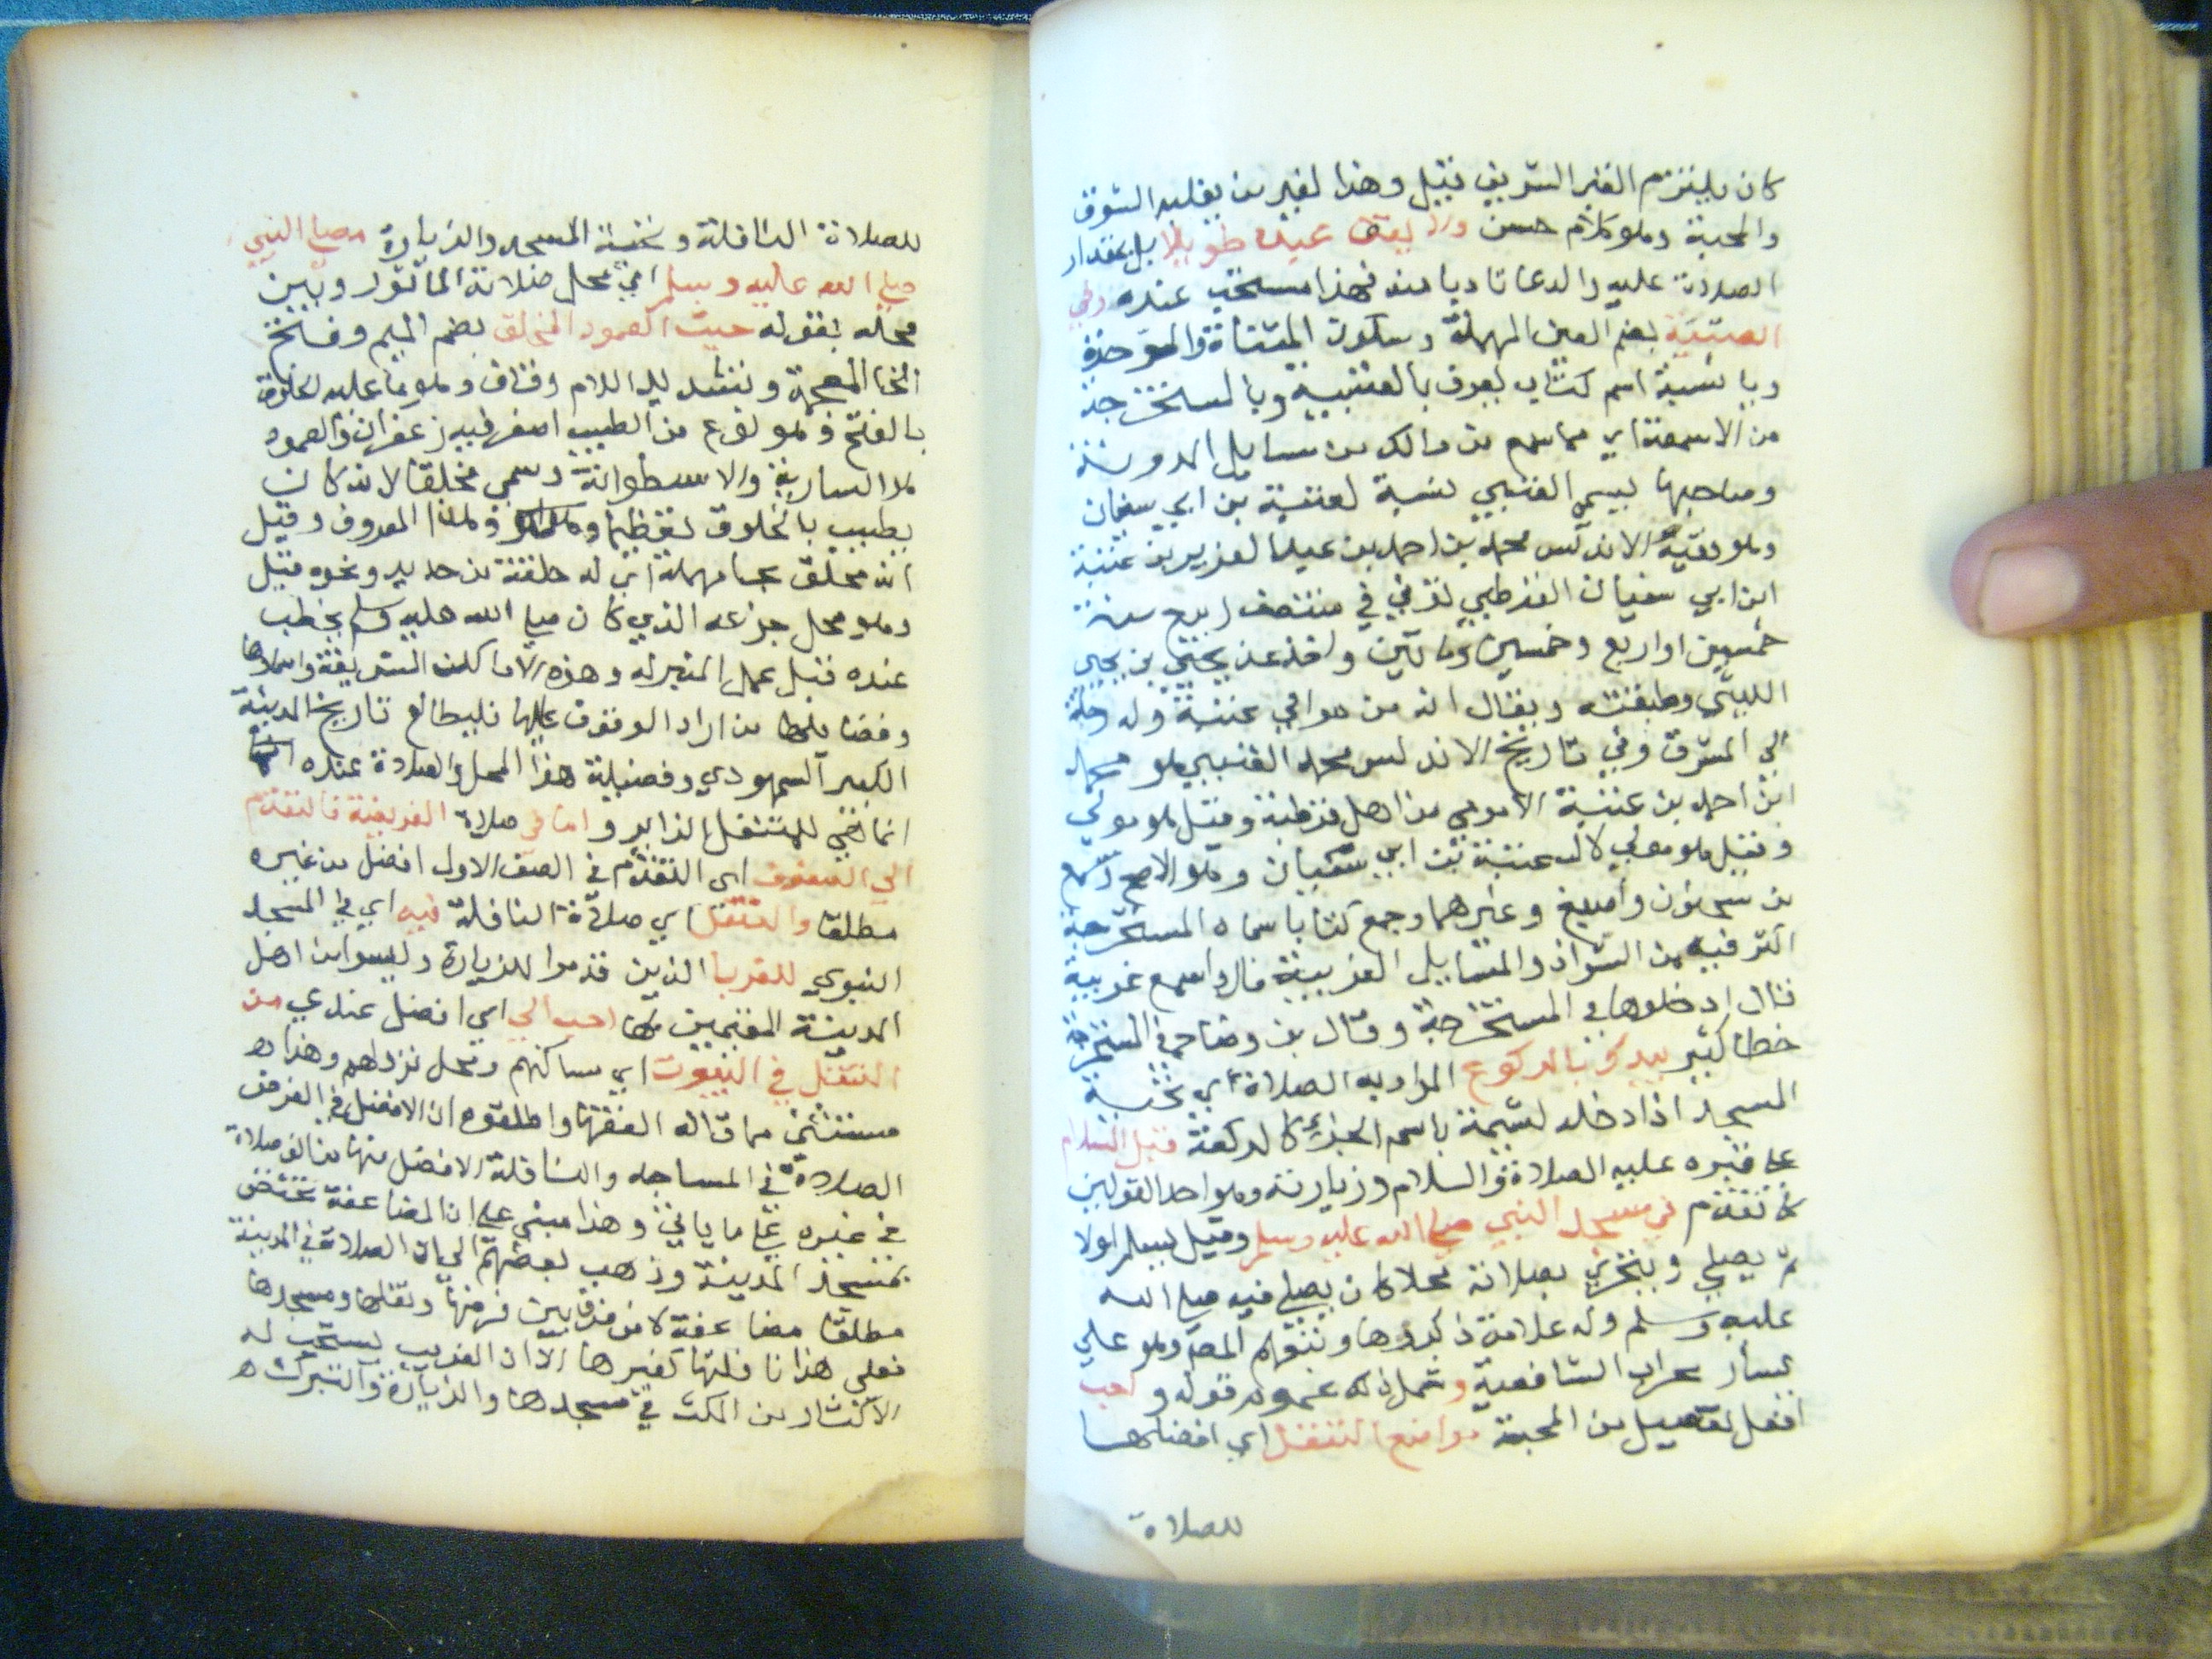 كان يلتزم القبر الشريف قيل وهذا لغير من يغلبه الشوق
والمحبة وهو كلام حسن ولا يقف عنده طويلا بل بمقدار
الصلاة عليه والدعا تادبا منه فهذا مستحب عنده وفي
العتبية بضم العين المهملة وسكون المثناة والموحدة
وبا نسبة اسم كتاب يعرف بالعتبية وبالمستخرجة
من الاسمعة اي مما سمع من مالك من مسايل المدونة
وصاحبها يسمى العتبي نسبة لعتبة بن ابي سفيان
وهو فقيه الاندلس محمد بن احمد بن عبد العزيز بن عتبة
ابن ابي سفيان القرطبي توفي في منتصف ربيع سنة
خمسين او اربع وخمسين ومايتين واخذ عن يحيى بن يحيى
الليثي وطبقته ويقال انه من موالي عتبة وله رحلة
الى المشرق وفي تاريخ الاندلس محمد العتبي هو محمد
ابن احمد بن عتبة الاموي من اهل قرطبة وقيل هو مولى
وقيل هو مولى لال عتبة بن ابي سفيان وهو الاصح سمع
من سحنون واصبغ وغيرهما وجمع كتابا سماه المستخرجة
اكثر فيه من الشواذ والمسايل الغريبة فاذا سمع غريبة
قال ادخلوها في المستخرجة وقال بن وضاح في المستخرجة
خطا كثير يبدأ بالركوع المراد به الصلاة اي تحية
المسجد اذا دخله تسمية باسم الجزء كالركعة قبل السلام
على قبره عليه الصلاة والسلام وزيارته وهو احد القولين
كما تقدم في مسجد النبي صلى الله عليه وسلم وقيل يسلم اولا
ثم يصلي ويتحرى بصلاته محلا كان يصلي فيه صلى الله
عليه وسلم وله علامة ذكروها وبقوله المص وهو على
يسار محراب الشافعية وشمل ذلك عموم قوله واحب
افعل تفضيل من المحبة مواضع التنفل اي افضلها
للصلاة
للصلاة النافلة وتحية المسجد والزيارة مصلى النبي
صلى الله عليه وسلم اي محل صلاته الماثور وبين
محله بقوله حيث العمود المخلق بضم الميم وفتح
الخا المعجمة وتشديد اللام وقاف وهو ما عليه الخلوق
بالفتح وهو نوع من الطيب اصفر فيه زعفران والعمود
هو السارية والاسطوانة وسمي مخلقا لانه كان
يطيب بالخلوق تعظيما وهذا المعروف وقيل
انه محلق بحا مهملة اي له حلقة من حديد ونحوه قيل
وهو محل جزعه الذي كان صلى الله عليه وسلم يخطب
عنده قبل عمل المنبر له وهذه الاماكن الشريفة واسماها
وفضايلها من اراد الوقوف عليها فليطالع تاريخ المدينة
الكبير للسمهودي وفضيلة هذا المحل والصلاة عنده
انما هي للمتنفل الزاير واما في صلاة الفريضة فالتقدم
الى الصفوف اي التقدم في الصف الاول افضل من غيره
مطلقا والتنفل اي صلاة النافلة فيه اي في المسجد
النبوي للغربا الذين قدموا للزيارة وليسوا من اهل
المدينة المقيمين بها احب الي اي افضل عندي من
التنفل في البيوت اي مساكنهم ومحل نزولهم وهذا
مستثنى مما قاله الفقها واطلقوه ان الافضل في الفرض
الصلاة في المساجد والنافلة الافضل منها من الف صلاة
في غيره على ما ياتي وهذا مبني على ان المضاعفة تختص
بمسجد المدينة وذهب بعضهم الى ان الصلاة في المدينة
مطلقا مضاعفة لا من فرق بين فرضها ونفلها ومسجدها
فعلى هذا نافلتها كغيرها الا ان الغريب يستحب له
الاكثار من المكث في مسجدها والزيارة والتبرك